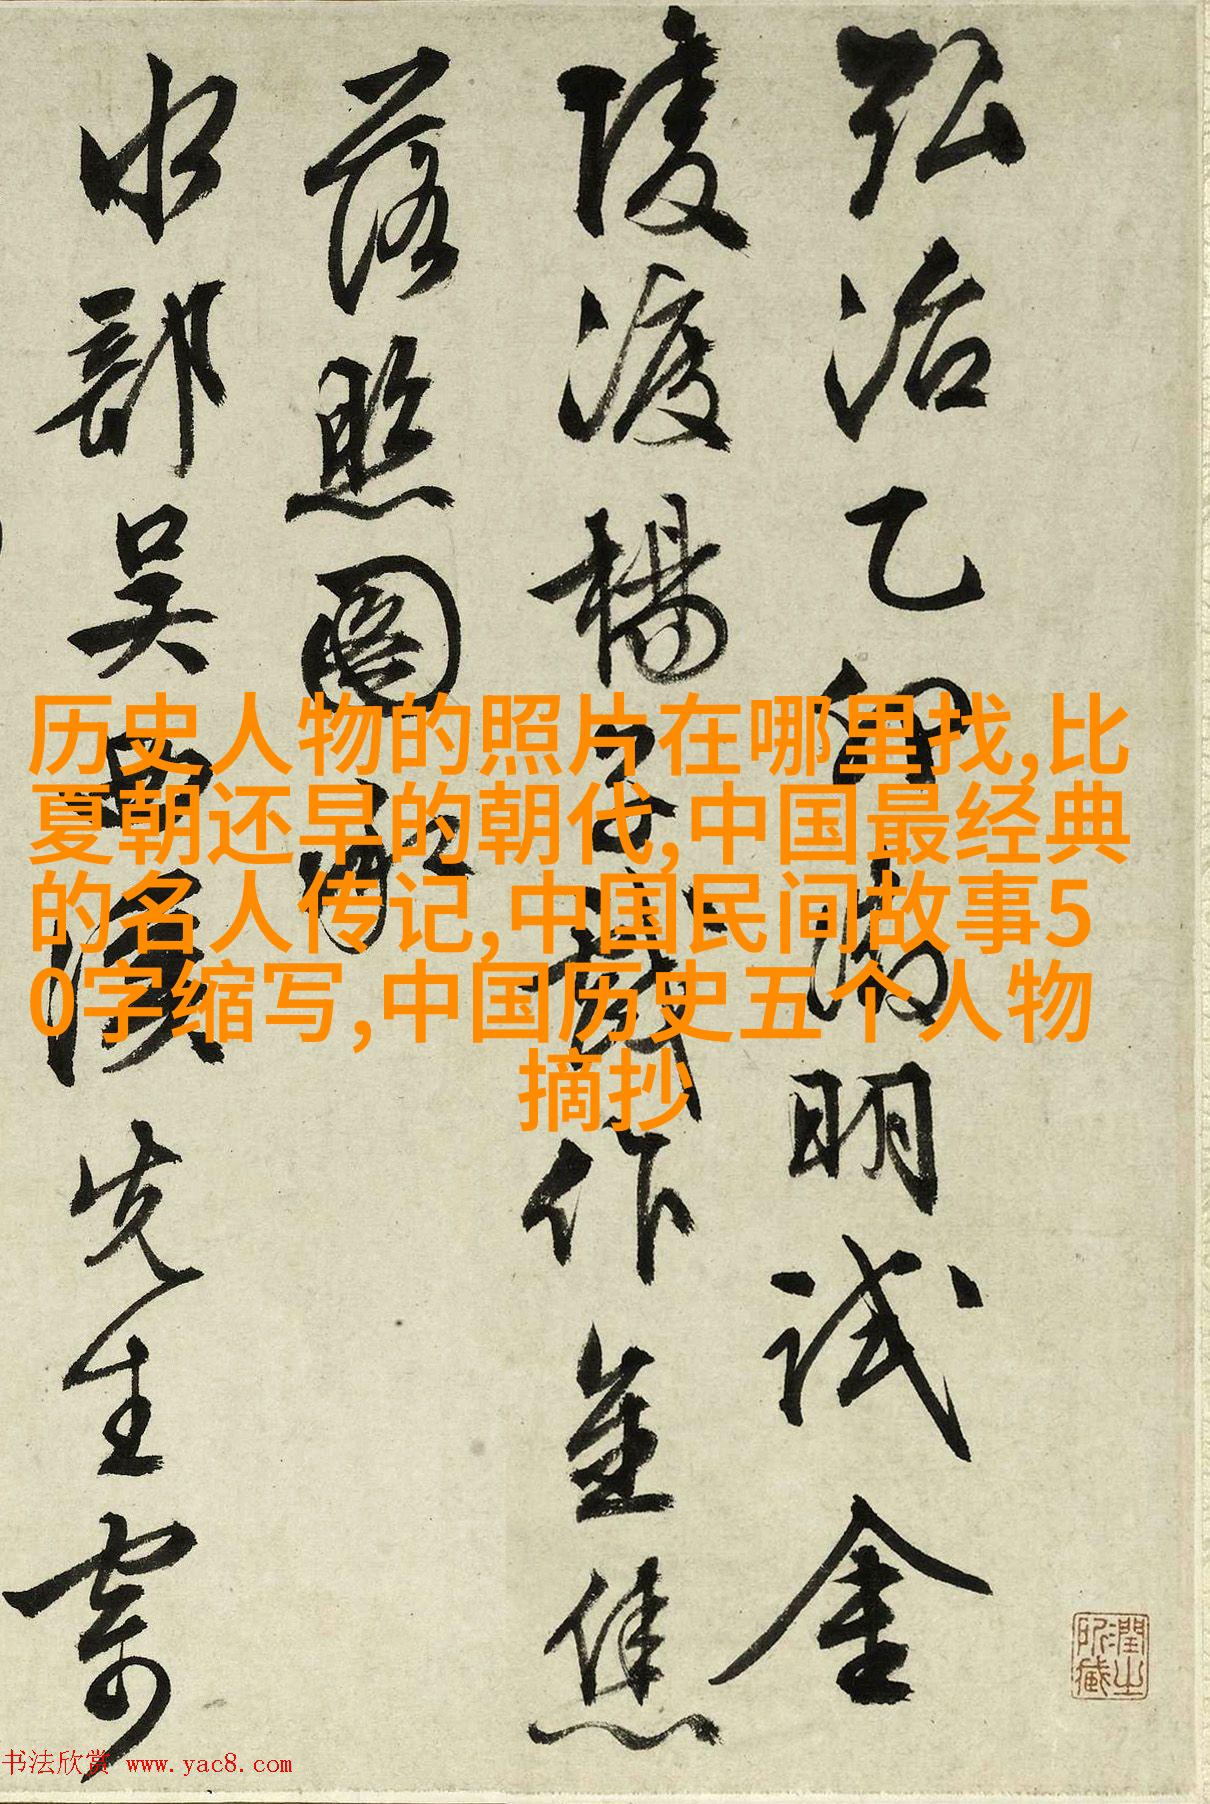 弘治乙卯
满明试金
陵渡杨子
戏作金焦
落照图
水部吴
先生寄
历史人物的照片在哪里找,比
夏朝还早的朝代,中国最经典
的名人传记,中国民间故事5
0字缩写,中国历史五个人物
摘抄
润之所藏
书法欣赏 www.yac8.com